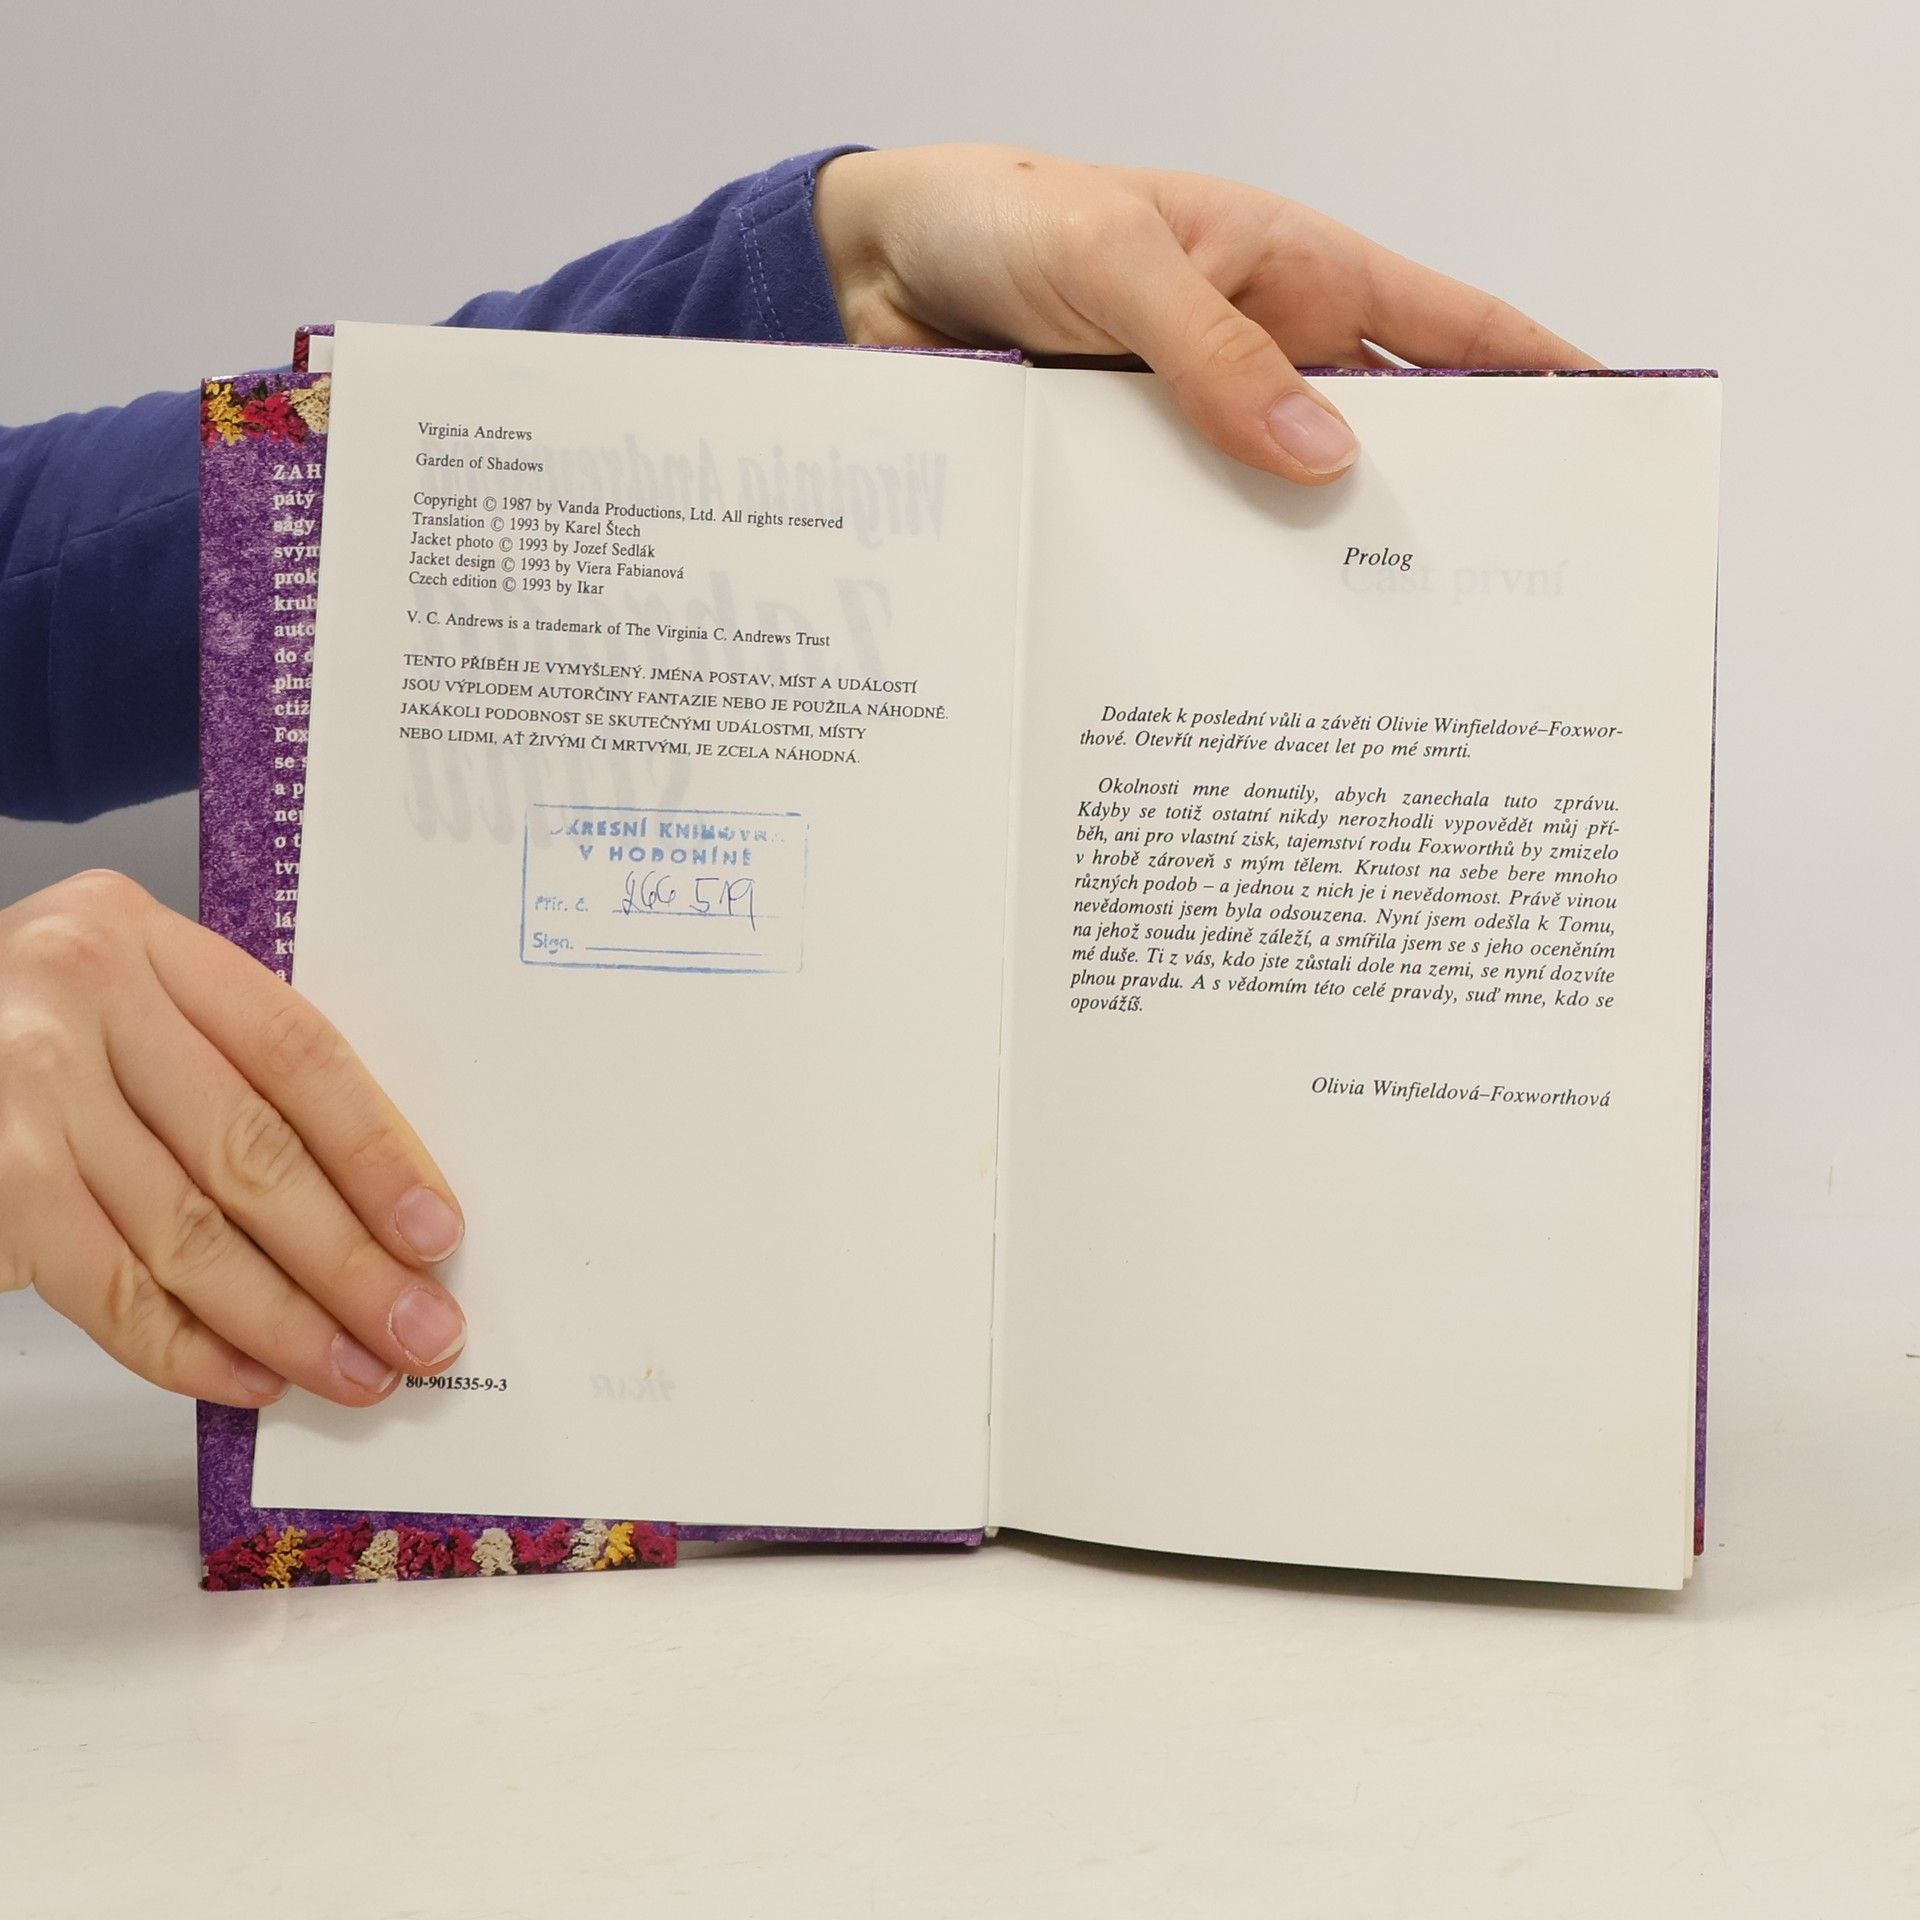 ZAH
pátý
ságy
svým
prok
kruh
auto
do d
plná
ctiž
Fox
se s
a p
nep
o t
tvr
zn
lás
kt
a
Virginia Andrews
Garden of Shadows
Copyright © 1987 by Vanda Productions, Ltd. All rights reserved
Translation © 1993 by Karel Štech
Jacket photo © 1993 by Jozef Sedlák
Jacket design © 1993 by Viera Fabianová
Czech edition © 1993 by Ikar
V. C. Andrews is a trademark of The Virginia C. Andrews Trust
TENTO PŘÍBĚH JE VYMYŠLENÝ. JMÉNA POSTAV, MÍST A UDÁLOSTÍ
JSOU VÝPLODEM AUTORČINY FANTAZIE NEBO JE POUŽILA NÁHODNĚ.
JAKÁKOLI PODOBNOST SE SKUTEČNÝMI UDÁLOSTMI, MÍSTY
NEBO LIDMI, AŤ ŽIVÝMI ČI MRTVÝMI, JE ZCELA NÁHODNÁ.
OKRESNÍ KNIHOVNA
V HODONÍNĚ
Přír. č. 266 519
Sign.
80-901535-9-3
Prolog
Dodatek k poslední vůli a závěti Olivie Winfieldové–Foxwor-
thové. Otevřít nejdříve dvacet let po mé smrti.
Okolnosti mne donutily, abych zanechala tuto zprávu.
Kdyby se totiž ostatní nikdy nerozhodli vypovědět můj pří-
běh, ani pro vlastní zisk, tajemství rodu Foxworthů by zmizelo
v hrobě zároveň s mým tělem. Krutost na sebe bere mnoho
různých podob – a jednou z nich je i nevědomost. Právě vinou
nevědomosti jsem byla odsouzena. Nyní jsem odešla k Tomu,
na jehož soudu jedině záleží, a smířila jsem se s jeho oceněním
mé duše. Ti z vás, kdo jste zůstali dole na zemi, se nyní dozvíte
plnou pravdu. A s vědomím této celé pravdy, suď mne, kdo se
opovážíš.
Olivia Winfieldová–Foxworthová